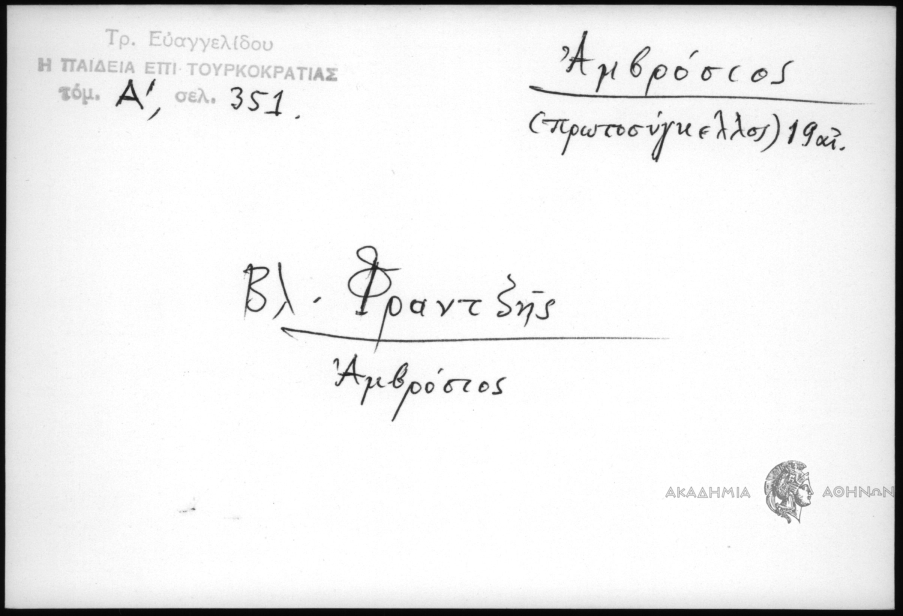 Τρ. Εὐαγγελίδου
Η ΠΑΙΔΕΙΑ ΕΠΙ ΤΟΥΡΚΟΚΡΑΤΙΑΣ
τόμ. Α', σελ. 351.
Ἀμβρόσιος
(πρωτοσύγκελλος) 19 αἰ.
Βλ. Φραντζῆς
Ἀμβρόσιος
ΑΚΑΔΗΜΙΑ ΑΘΗΝΩΝ